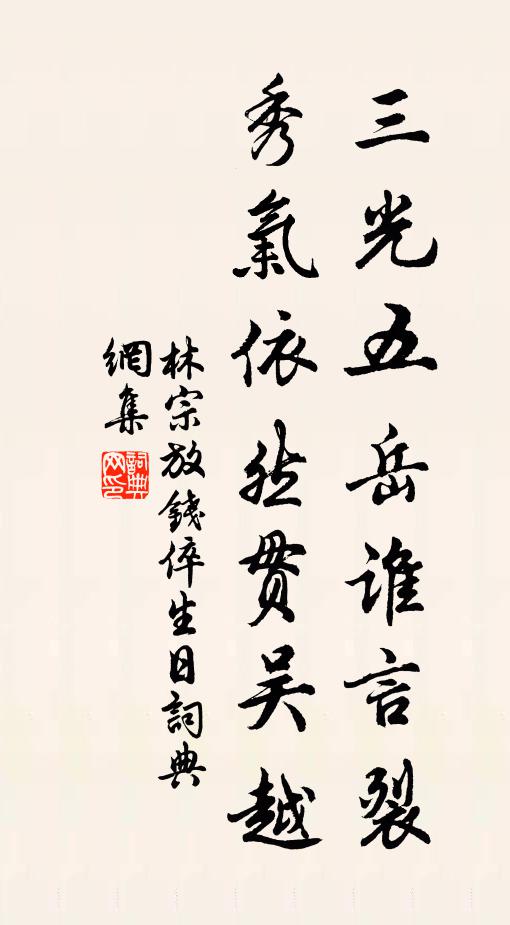 三光五岳誰言裂
秀氣依然貫吳越
林宗放錢倅生日詞典
網集
詞典網印